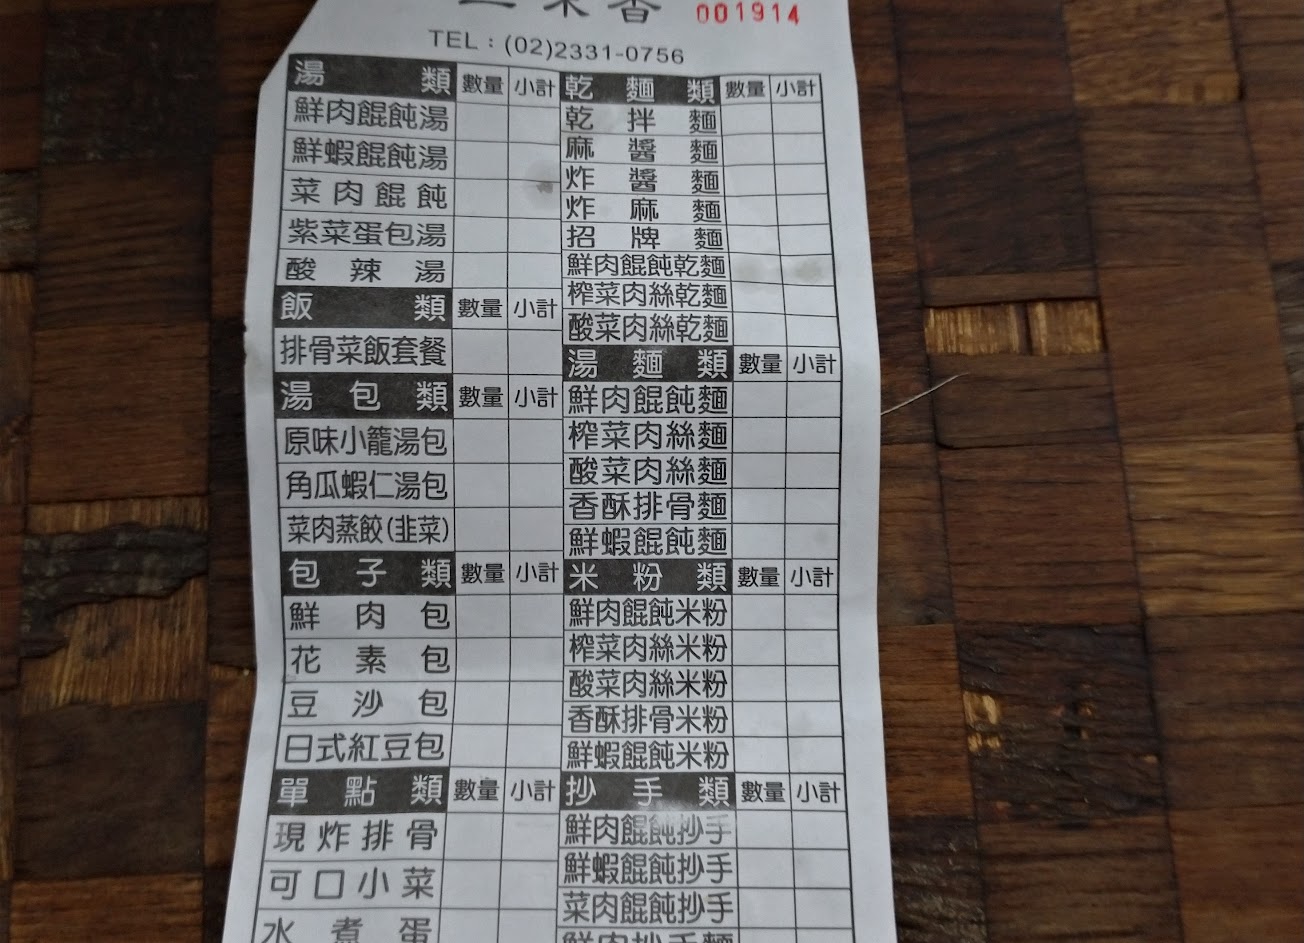 001914
TEL：(02)2331-0756
湯類 數量 小計
鮮肉餛飩湯
鮮蝦餛飩湯
菜肉餛飩
紫菜蛋包湯
酸辣湯
飯類 數量 小計
排骨菜飯套餐
湯包類 數量 小計
原味小籠湯包
角瓜蝦仁湯包
菜肉蒸餃(韭菜)
包子類 數量 小計
鮮肉包
花素包
豆沙包
日式紅豆包
單點類 數量 小計
現炸排骨
可口小菜
水煮蛋
乾麵類 數量 小計
乾拌麵
麻醬麵
炸醬麵
炸麻麵
招牌麵
鮮肉餛飩乾麵
榨菜肉絲乾麵
酸菜肉絲乾麵
湯麵類 數量 小計
鮮肉餛飩麵
榨菜肉絲麵
酸菜肉絲麵
香酥排骨麵
鮮蝦餛飩麵
米粉類 數量 小計
鮮肉餛飩米粉
榨菜肉絲米粉
酸菜肉絲米粉
香酥排骨米粉
鮮蝦餛飩米粉
抄手類 數量 小計
鮮肉餛飩抄手
鮮蝦餛飩抄手
菜肉餛飩抄手
鮮肉抄手麵